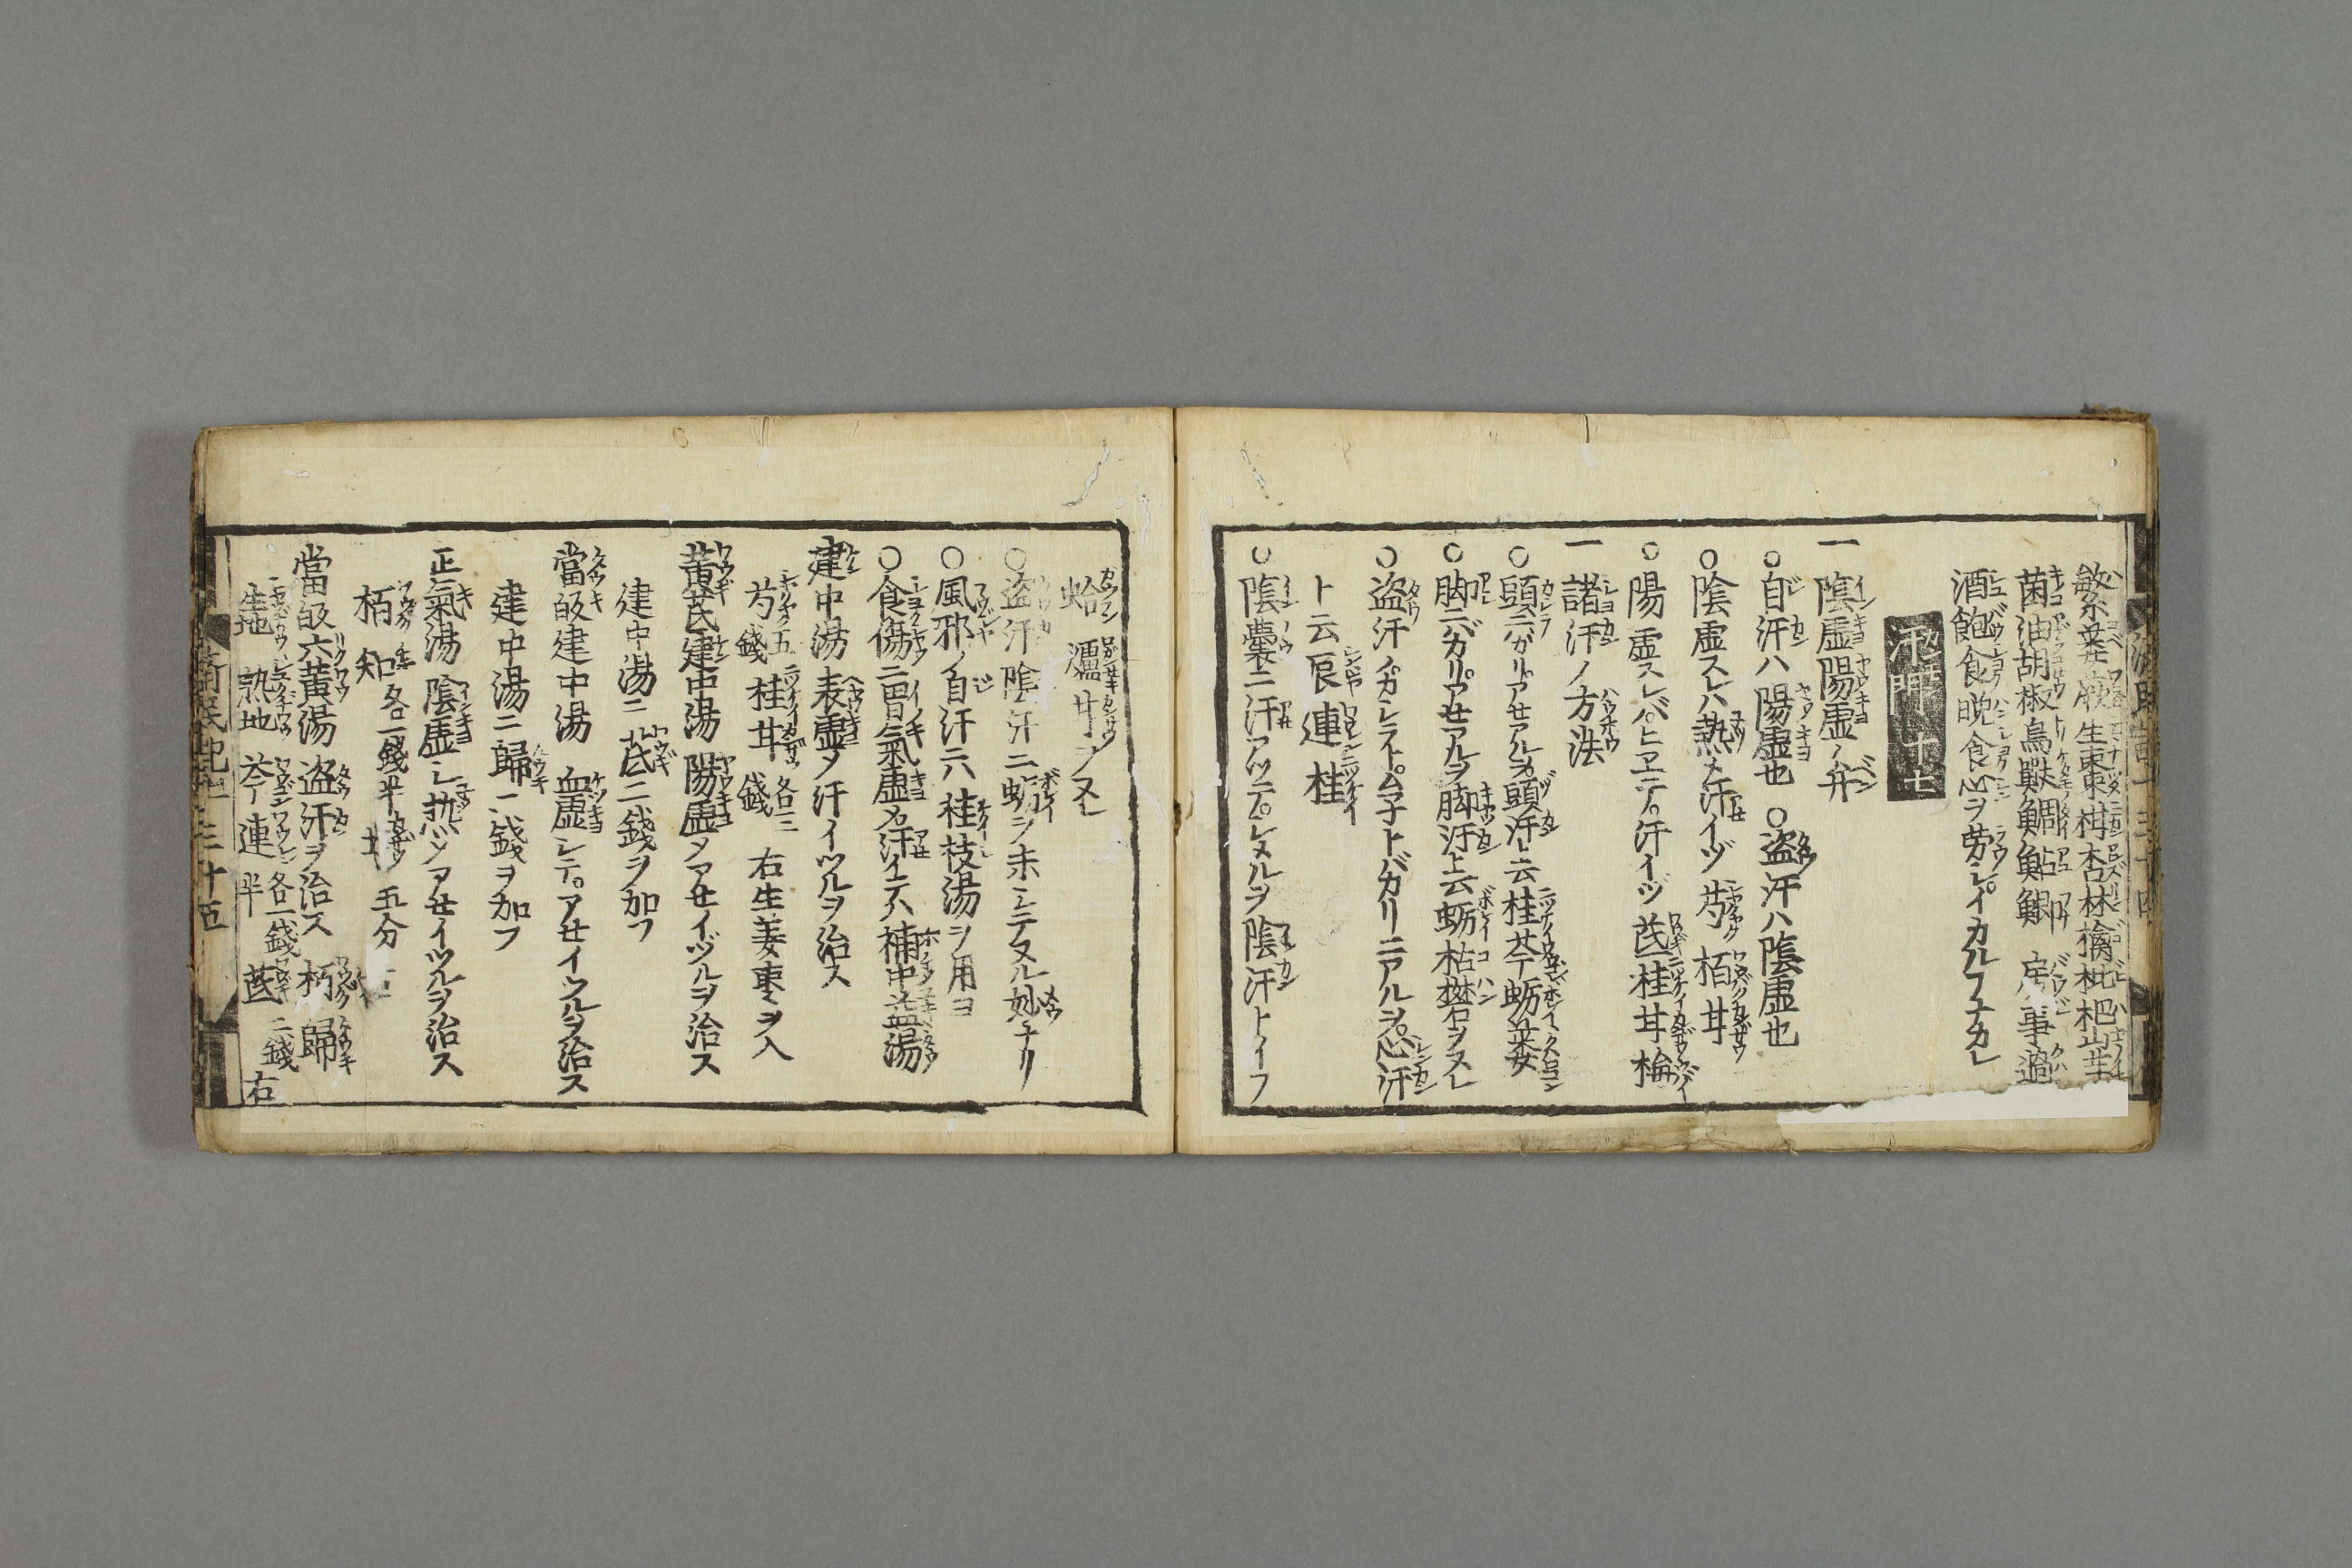 蕨生棗柑杏林檎枇杷
菌油胡椒鳥獸鯛鮎鯽房事過
酒飽食晩食心ヲ労シイカルフナカレ
汗門十七
一陰虚陽虚ノ弁
○自汗ハ陽虚也○盗汗ハ陰虚也
○陰虚スレハ熱メ汗イヅ芍栢甘
○陽虚スレバヒエテ汗イヅ芪桂甘
一諸汗ノ方法
○頭ニハガリアセアルヲ頭汗ト云桂芩蛎
○脚ニバガリアセアルヲ脚汗ト云蛎枯礬ヲヌレ
○盗汗
トバカリニアルヲ心汗
ト云辰連桂
○陰嚢ニ汗アツテシメルヲ陰汗トイフ
蛤 甘ヲヌレ
○盗汗陰汗ニ蛎ヲ末シテヌル妙ナリ
○風邪ノ自汗ニハ桂枝湯ヲ用ヨ
○食傷ニ胃氣虚メ汗イテハ補中益湯
建中湯 表虚メ汗イツルヲ治ス
芍五錢 桂甘各三錢 右生姜棗ヲ入
黄芪建中湯 陽虚メアセイヅルヲ治ス
建中湯ニ芪二錢ヲ加フ
當皈建中湯 血虚シテアセイツルヲ治ス
建中湯ニ歸二錢ヲ加フ
正氣湯 陰虚シ熱シアセイツルヲ治ス
栢 知各一錢半 甘五分
當皈六黄湯 盗汗ヲ治ス 栢 歸
生地 熟地 芩連半各一錢 芪二錢 右
三十五